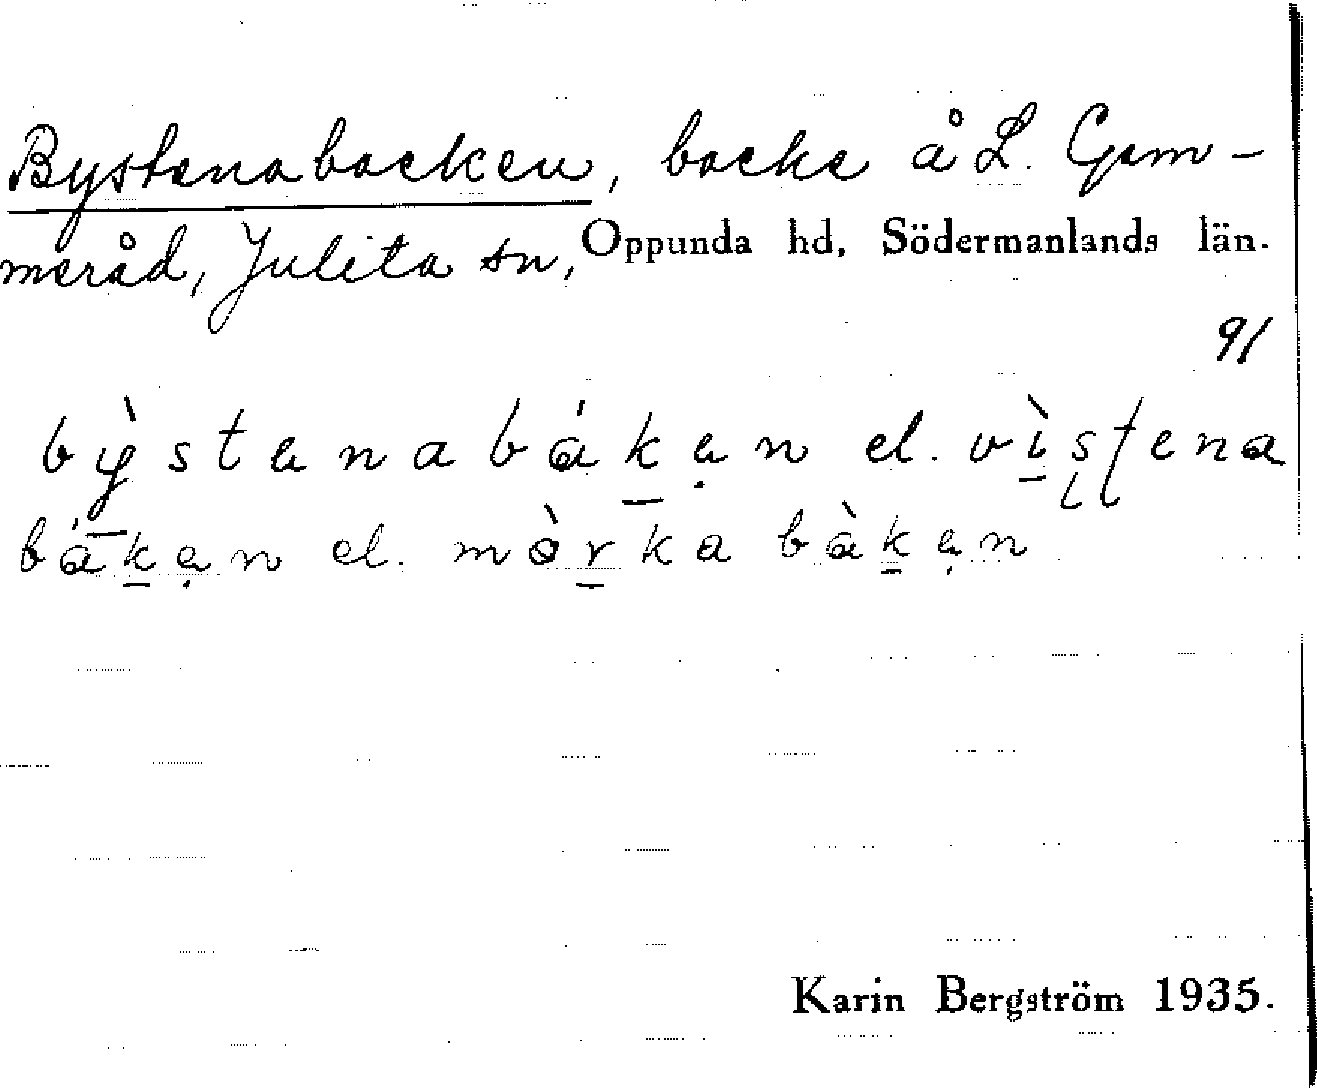 Bystenabacken, backe å L. Gim-
meråd, Julita sn, Oppunda hd, Södermanlands län.
91
bỳstenabákẹn el. vìstena
bákẹn el. mòrka bàkẹn
Karin Bergström 1935.